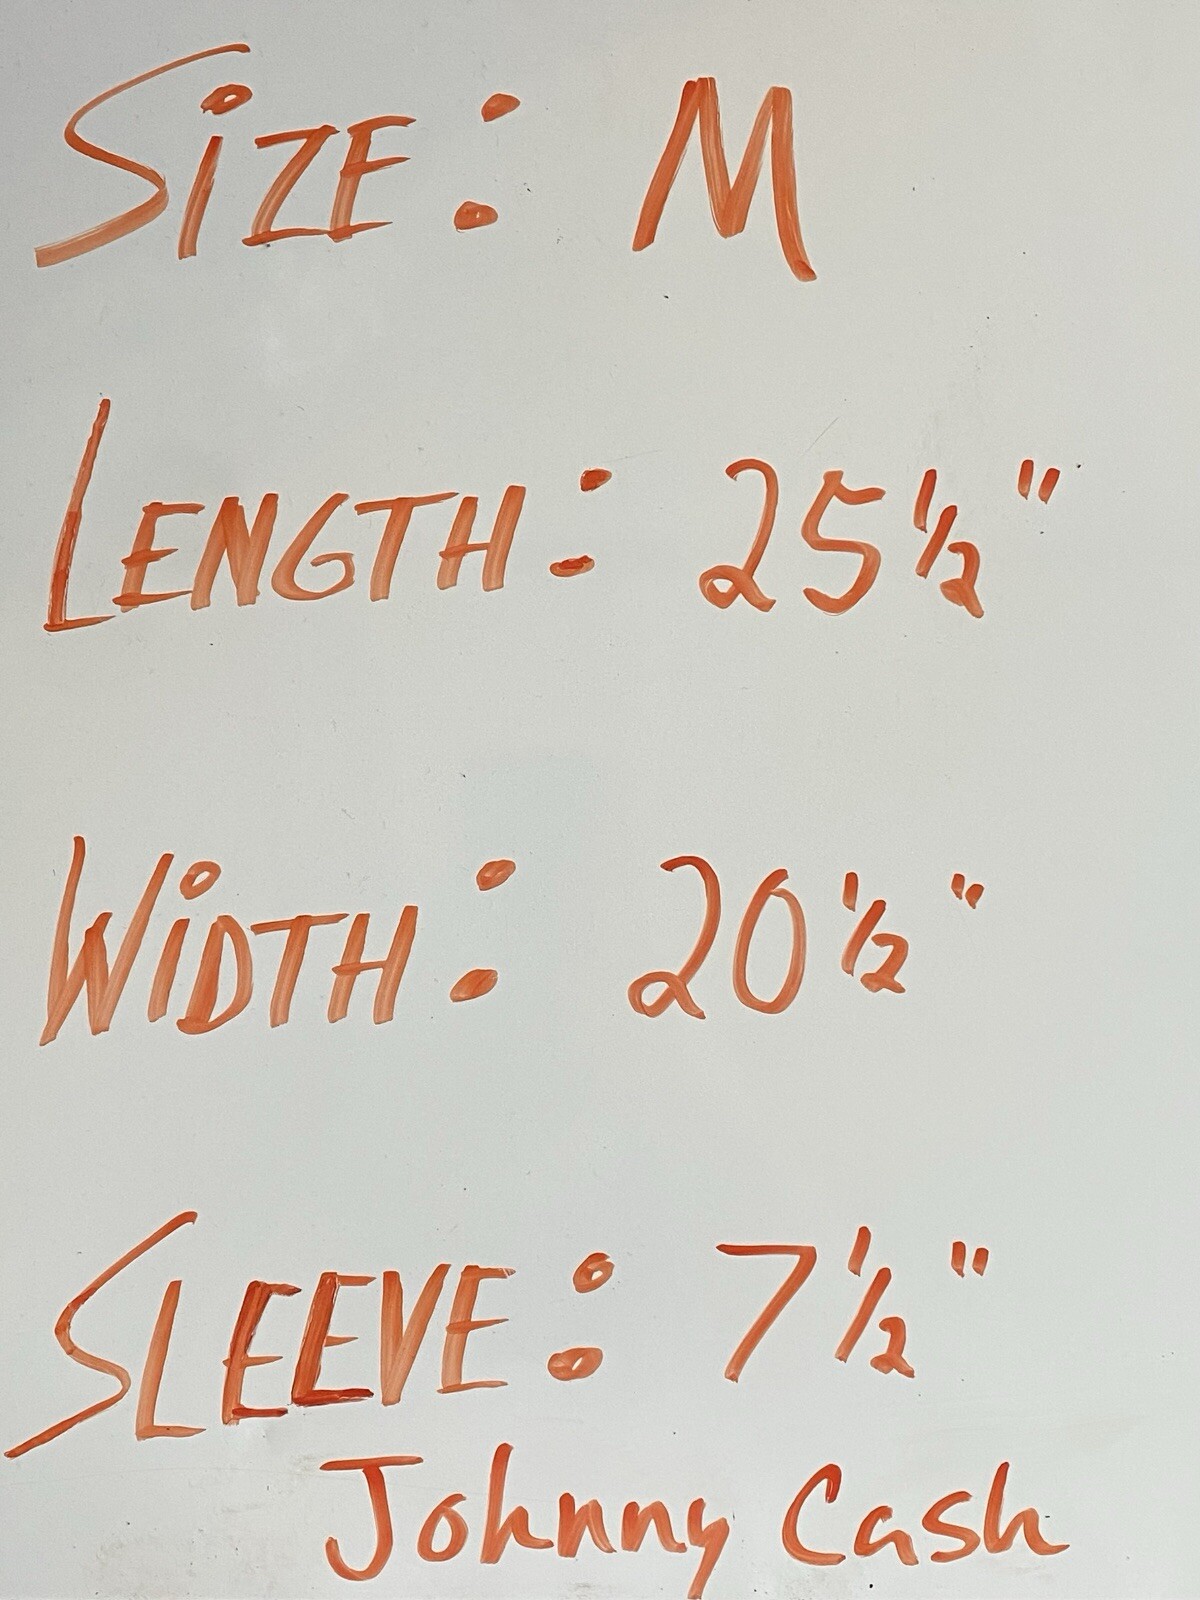 SiZE: M
LENGTH: 25 1/2"
WiDTH: 20 1/2"
SLEEVE: 7 1/2"
Johnny Cash